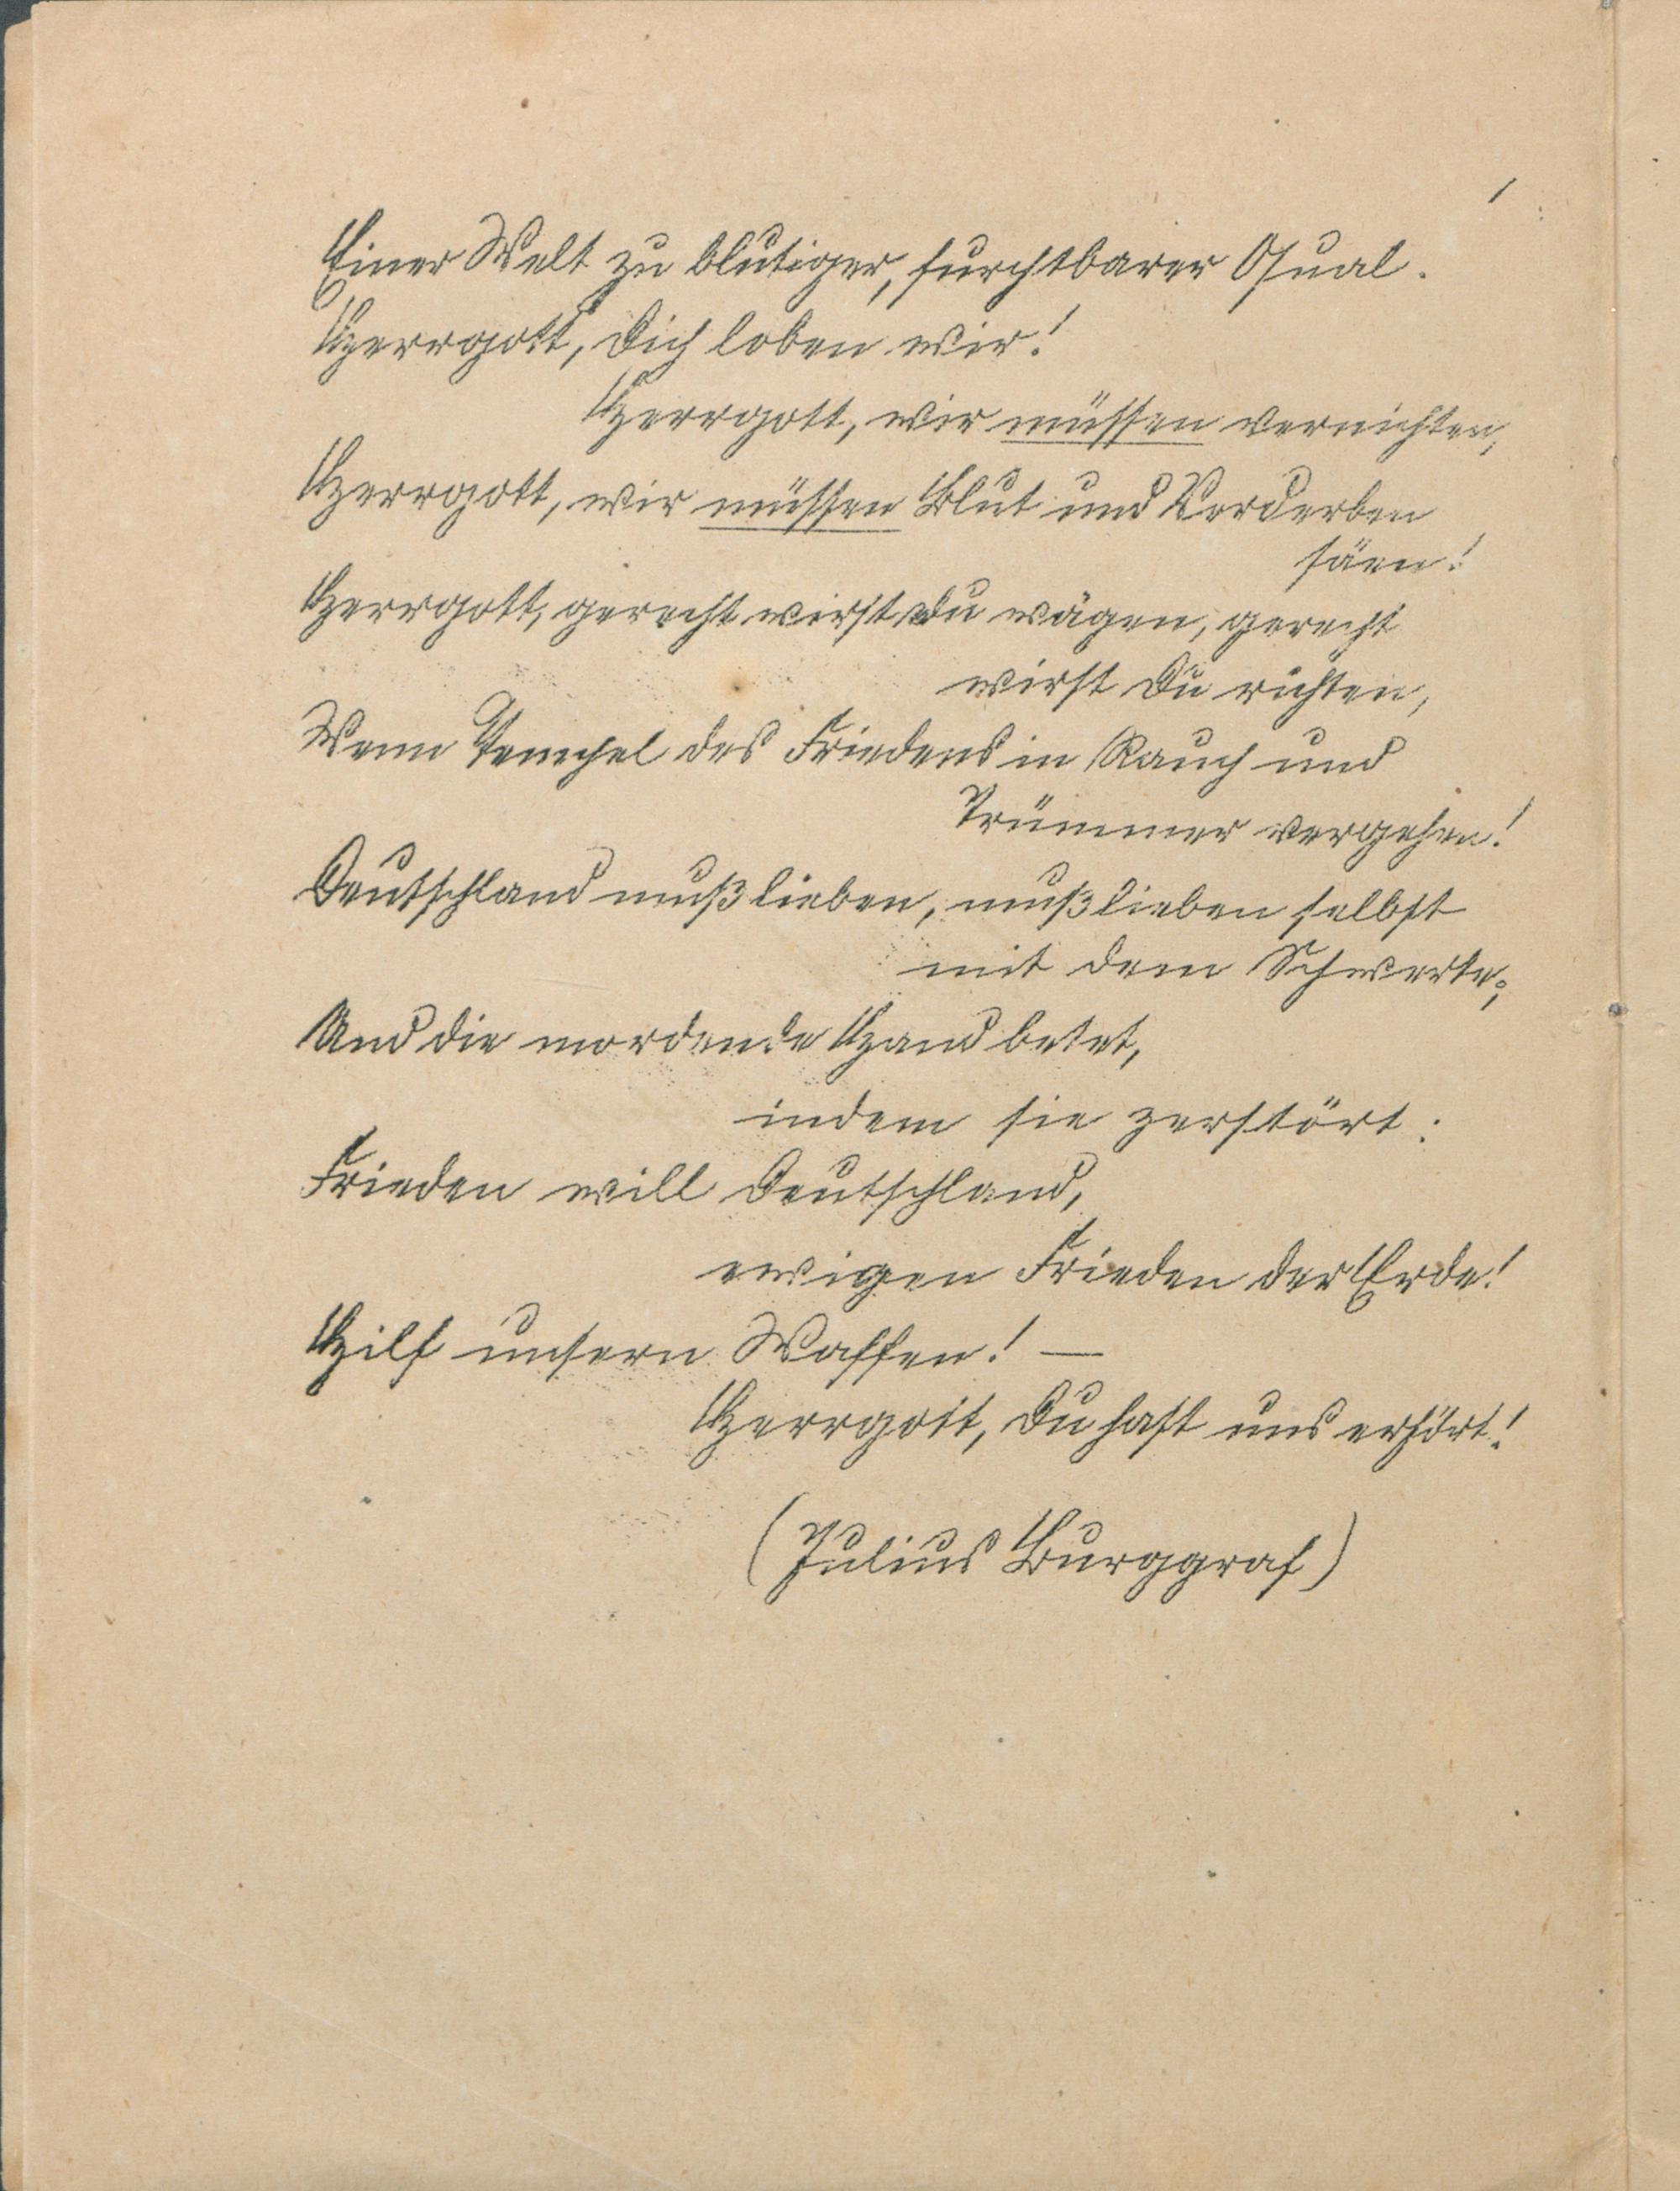 Einer Welt zu blutiger, furchtbarer Qual.
Herrgott, Dich loben wir!
Herrgott, wir müssen vernichten,
Herrgott, wir müssen Blut und Verderben
säen!
Herrgott, gerecht wirst du wägen, gerecht
wirst Du richten,
Wenn Tempel des Friedens in Rauch und
Trümmer vergehen!
Deutschland muß lieben, muß lieben selbst
mit dem Schwerte;
Und die mordende Hand betet,
indem sie zerstört:
Frieden will Deutschland,
ewigen Frieden der Erde!
Hilf unsern Waffen! —
Herrgott, Du hast uns erhört!
(Julius Burggraf)